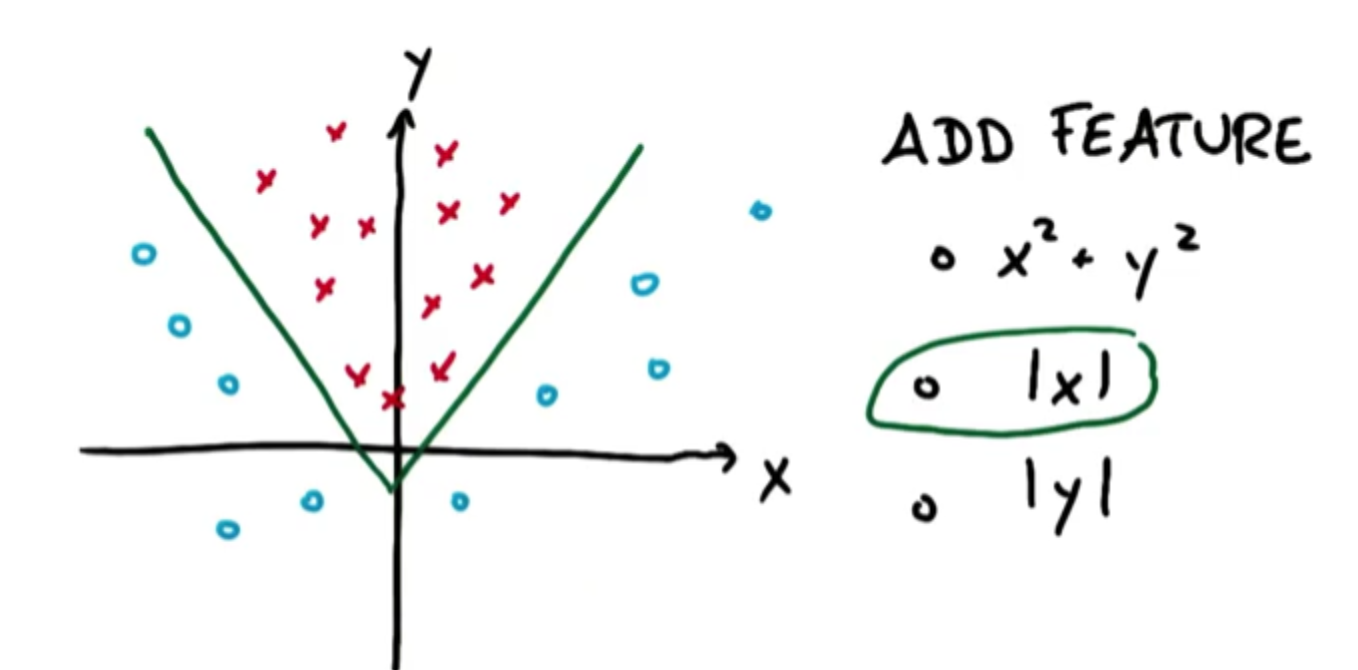 y
x
ADD FEATURE
o x² + y²
o |x|
o |y|